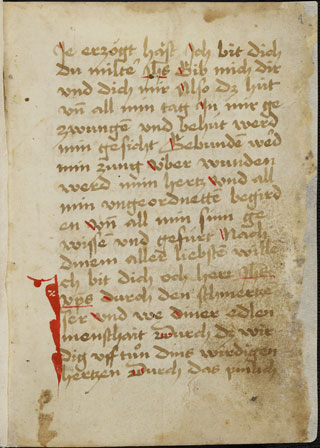 je erzögt hast Ich bit dich
du milte Ihs Gib mich dir
und dich mir Also dz hüt
uñ all min tag In mir ge
zwungē und behüt werd
min gesicht Gebundē werd
min zung Vber wunden
werd min hertz und all
min ungeordnetten begird
en Vñ all min sinn ge
wissē und gefürt Nach
dinem aller liebsten wille
Ich bit dich och herr Ihe
durch den schmertze
und we diner edlen
menschait Durch dz wir
dig uff tuon dins wirdigen
hertzen Durch das pinlich